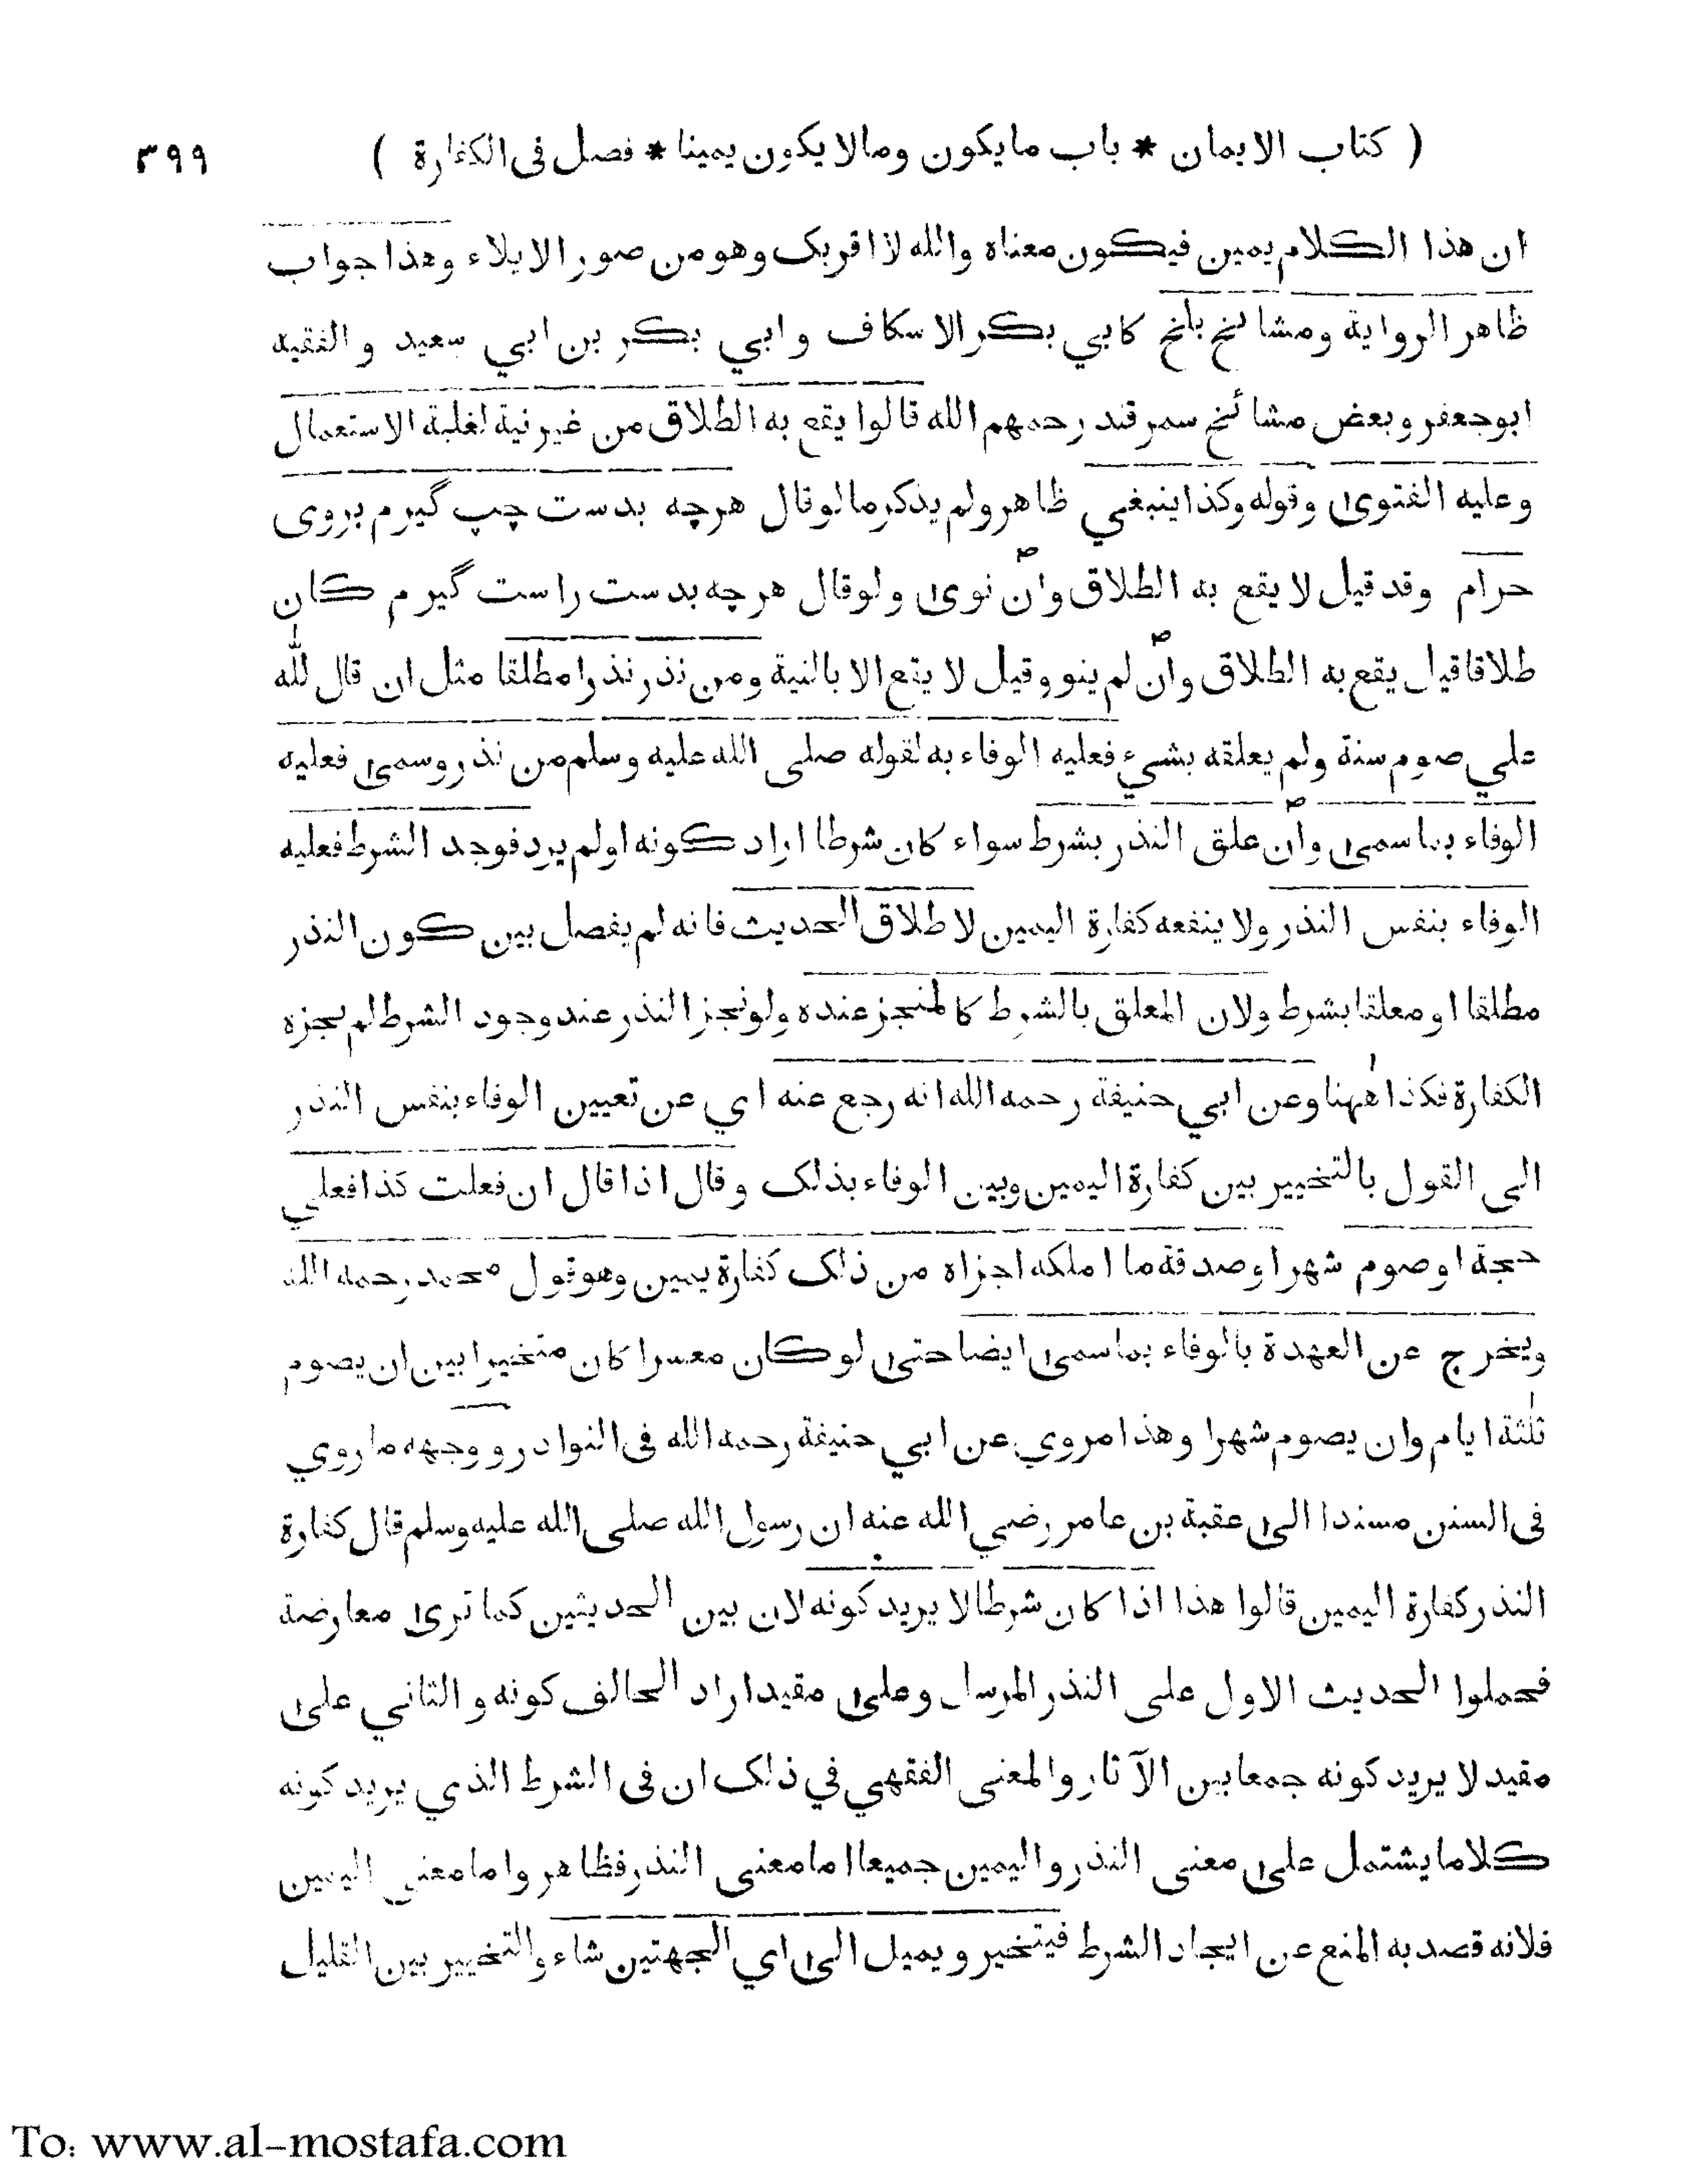 ( كتاب الايمان * باب مايكون ومالايكون يمينا * فصل فى الكفارة ) ٣٩٩
ان هذا الكلام يمين فيكون معناه والله لا اقربك وهو من صور الايلاء وهذا جواب
ظاهر الرواية ومشائخ بلخ كابي بكر الاسكاف وابي بكر بن ابي سعيد والفقيه
ابوجعفر وبعض مشائخ سمرقند رحمهم الله قالوا يقع به الطلاق من غير نية لغلبة الاستعمال
وعليه الفتوى وقوله وكذا ينبغي ظاهر ولم يذكر مالو قال هرچه بدست چپ گيرم بروى
حرام وقد قيل لا يقع به الطلاق وان نوى ولو قال هرچه بدست راست گيرم كان
طلاقا قيل يقع به الطلاق وان لم ينو وقيل لا يقع الا بالنية ومن نذر نذرا مطلقا مثل ان قال لله
علي صوم سنة ولم يعلقه بشيء فعليه الوفاء به لقوله صلى الله عليه وسلم من نذر وسمى فعليه
الوفاء بما سمى وان علق النذر بشرط سواء كان شرطا اراد كونه اولم يرد فوجد الشرط فعليه
الوفاء بنفس النذر ولا ينفعه كفارة اليمين لاطلاق الحديث فانه لم يفصل بين كون النذر
مطلقا او معلقا بشرط ولان المعلق بالشرط كالمنجز عنده ولو نجز النذر عند وجود الشرط لم يجزه
الكفارة فكذا ههنا وعن ابي حنيفة رحمه الله انه رجع عنه اي عن تعيين الوفاء بنفس النذر
الى القول بالتخيير بين كفارة اليمين وبين الوفاء بذلك وقال اذا قال ان فعلت كذا فعلي
حجة او صوم شهر او صدقة ما املكه اجزاه من ذلك كفارة يمين وهو قول محمد رحمه الله
ويخرج عن العهدة بالوفاء بما سمى ايضا حتى لو كان معسرا كان متخيرا بين ان يصوم
ثلثة ايام وان يصوم شهرا وهذا مروي عن ابي حنيفة رحمه الله فى النوادر ووجهه ماروي
فى السنن مسندا الى عقبة بن عامر رضي الله عنه ان رسول الله صلى الله عليه وسلم قال كفارة
النذر كفارة اليمين قالوا هذا اذا كان شرطا لا يريد كونه لان بين الحديثين كما ترى معارضة
فحملوا الحديث الاول على النذر المرسل وعلى مقيد اراد الحالف كونه والثاني على
مقيد لا يريد كونه جمعا بين الآثار والمعنى الفقهي في ذلك ان فى الشرط الذي يريد كونه
كلاما يشتمل على معنى النذر واليمين جميعا اما معنى النذر فظاهر واما معنى اليمين
فلانه قصد به المنع عن ايجاد الشرط فيتخير ويميل الى اي الجهتين شاء والتخيير بين القليل
To: www.al-mostafa.com